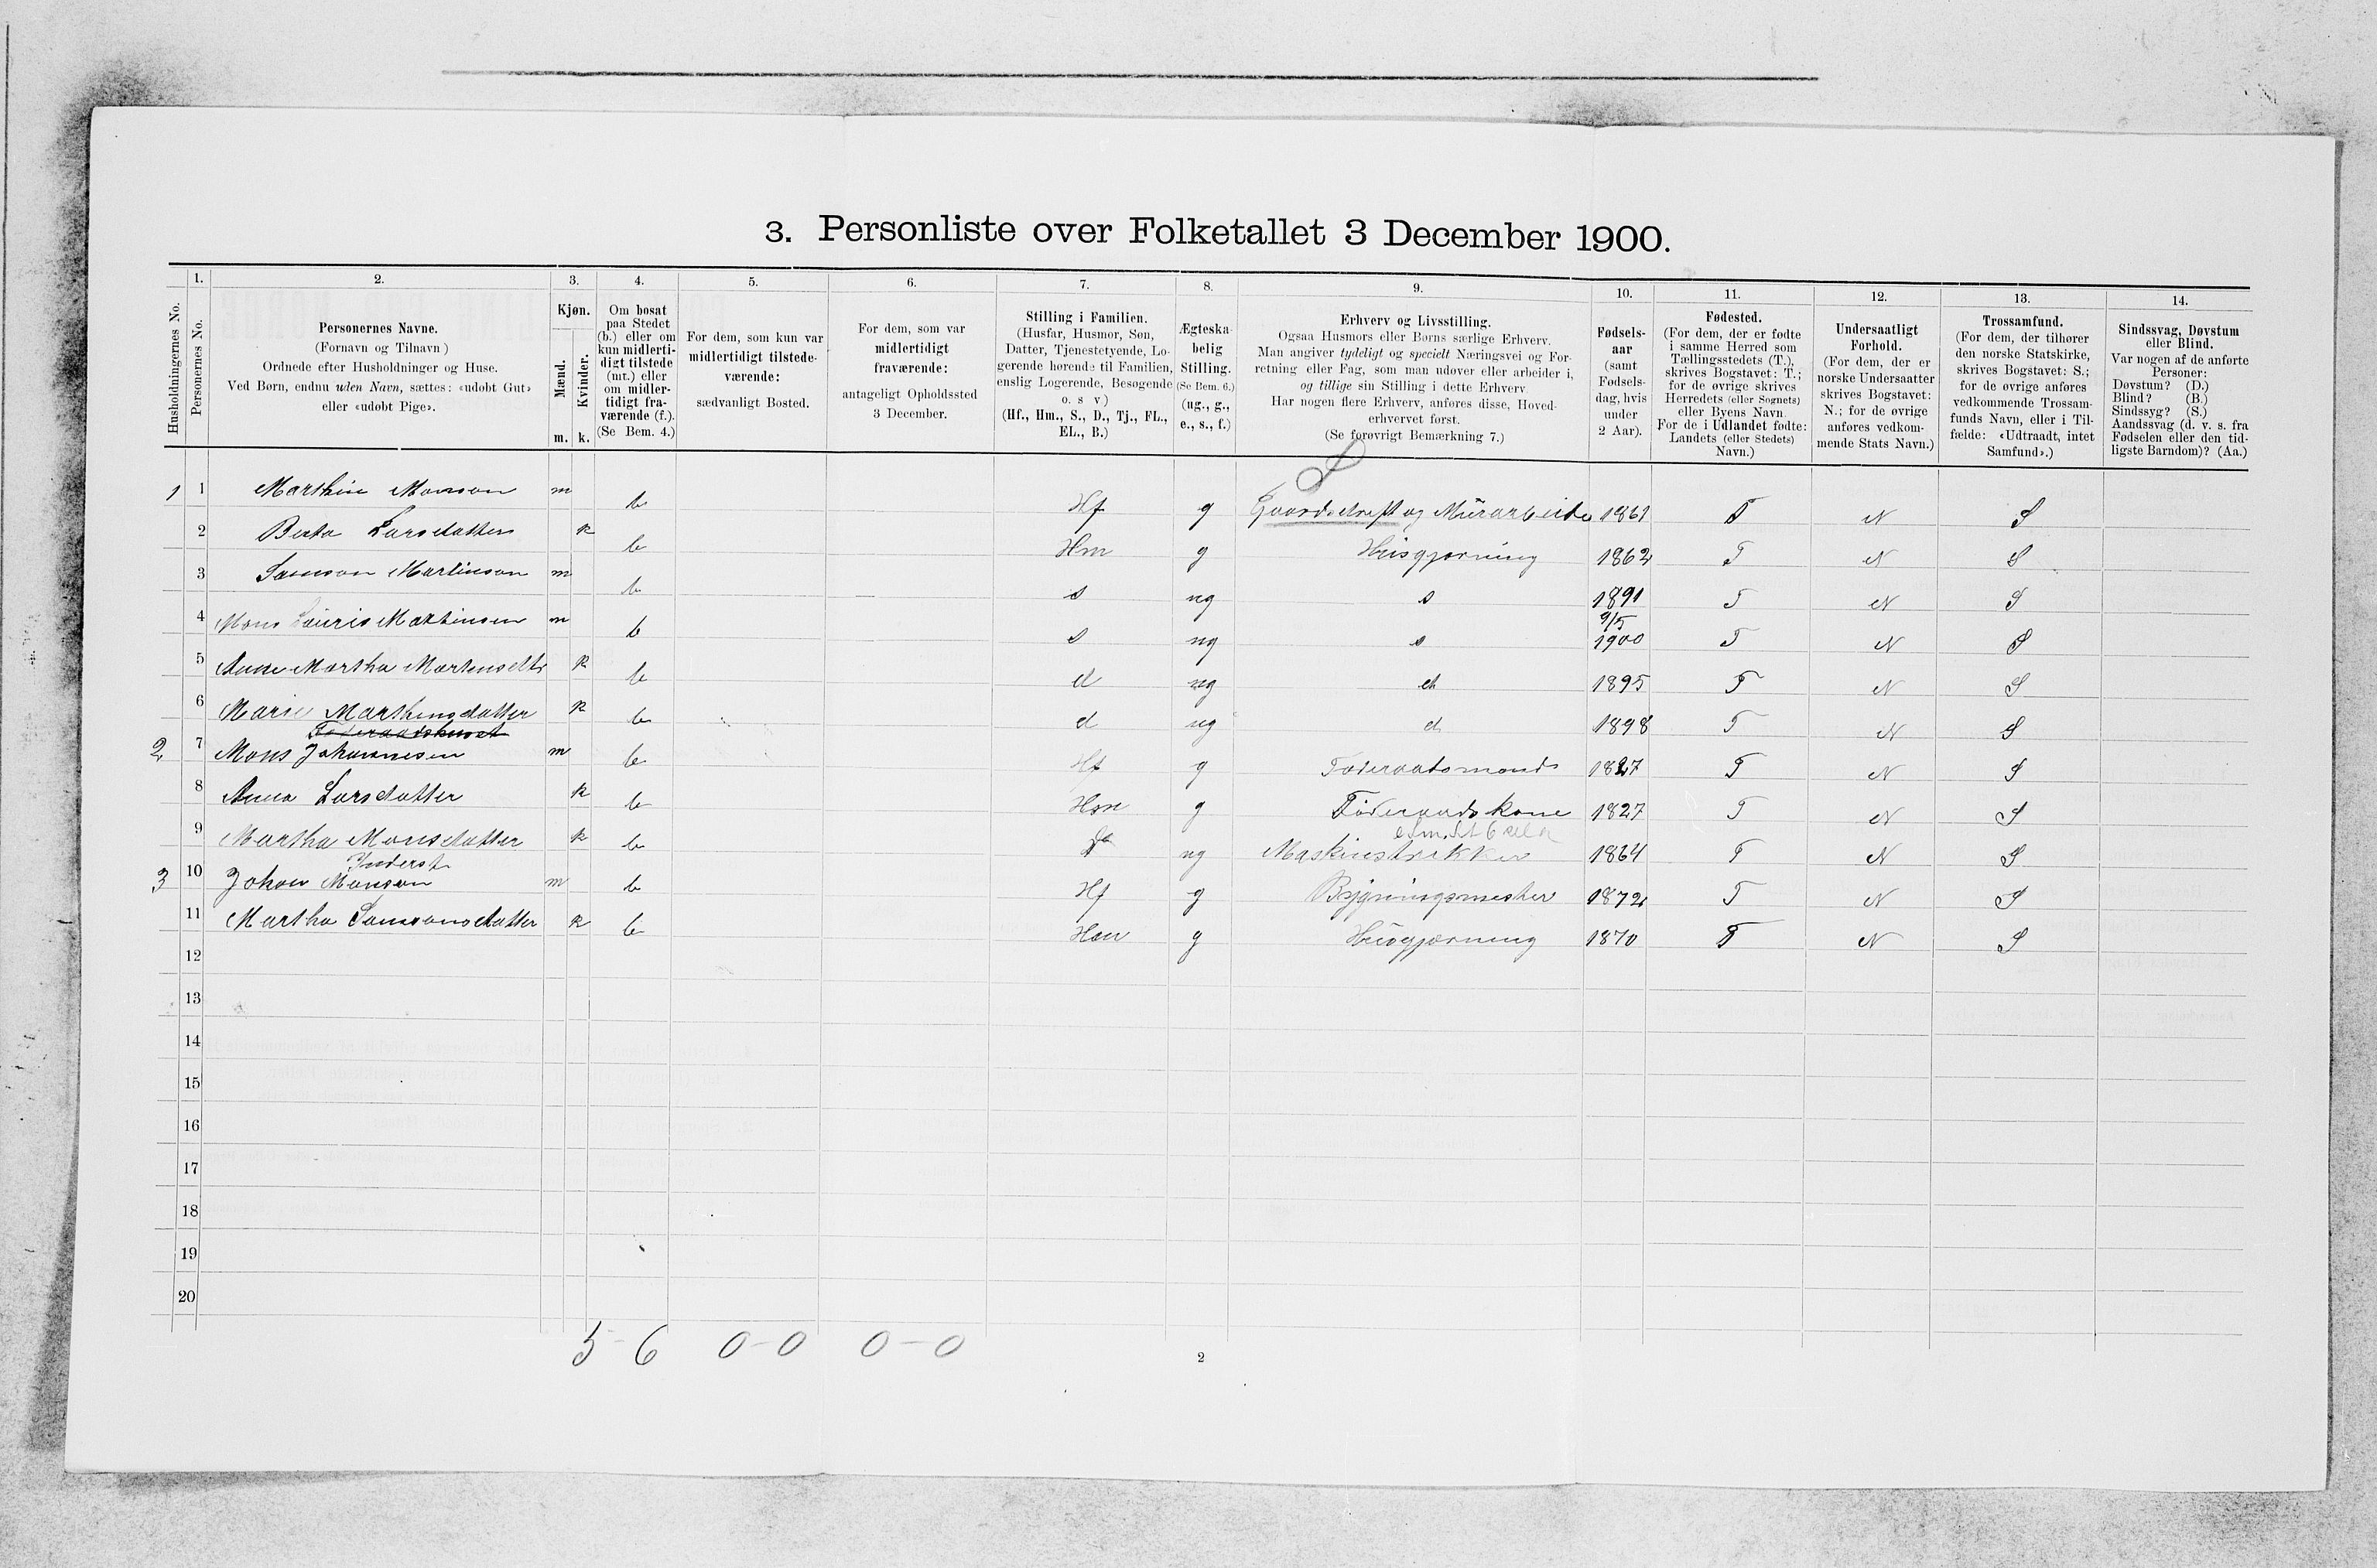 3. Personliste over Folketallet 3 December 1900.
Husholdningernes No.
1. Personernes No.
2. Personernes Navne.
(Fornavn og Tilnavn)
Ordnede efter Husholdninger og Huse.
Ved Børn, endnu uden Navn, sættes: «udøbt Gut»
eller «udøbt Pige».
3. Kjøn.
Mænd. m.
Kvinder. k.
4. Om bosat
paa Stedet
(b.) eller om
kun midlerti-
digt tilstede
(mt.) eller
om midler-
tidigt fra-
værende (f.).
(Se Bem. 4.)
5. For dem, som kun var
midlertidigt tilstede-
værende:
sædvanligt Bosted.
6. For dem, som var
midlertidigt
fraværende:
antageligt Opholdssted
3 December.
7. Stilling i Familien.
(Husfar, Husmor, Søn,
Datter, Tjenestetyende, Lo-
gerende hørende til Familien,
enslig Logerende, Besøgende
o. s v.)
(Hf., Hm., S., D., Tj., FL.,
EL., B.)
8. Ægteska-
belig
Stilling.
(Se Bem. 6.)
(ug., g.,
e., s., f.)
9. Erhverv og Livsstilling.
Ogsaa Husmors eller Børns særlige Erhverv.
Man angiver tydeligt og specielt Næringsvei og For-
retning eller Fag, som man udøver eller arbeider i,
og tillige sin Stilling i dette Erhverv.
Har nogen flere Erhverv, anføres disse, Hoved-
erhvervet først.
(Se forøvrigt Bemærkning 7.)
10. Fødsels-
aar
(samt
Fødsels-
dag, hvis
under
2 Aar).
11. Fødested.
(For dem, der er fødte
i samme Herred som
Tællingsstedets (T.),
skrives Bogstavet: T.;
for de øvrige skrives
Herredets (eller Sognets)
eller Byens Navn.
For de i Udlandet fødte:
Landets (eller Stedets)
Navn.)
12. Undersaatligt
Forhold.
(For dem, der er
norske Undersaatter
skrives Bogstavet:
N.; for de øvrige
anføres vedkom-
mende Stats Navn.)
13. Trossamfund.
(For dem, der tilhører
den norske Statskirke,
skrives Bogstavet: S.;
for de øvrige anføres
vedkommende Trossam-
funds Navn, eller i Til-
fælde: «Udtraadt, intet
Samfund».)
14. Sindssvag, Døvstum
eller Blind.
Var nogen af de anførte
Personer:
Døvstum? (D.)
Blind? (B.)
Sindssyg? (S.)
Aandssvag (d. v. s. fra
Fødselen eller den tid-
ligste Barndom)? (Aa.)
1 1 Marthin Monson m b Hf g Gaardsdrift og Mürarbeide 1861 T N S
2 Berta Larsdatter k b Hm g Hüsgjørning 1862 T N S
3 Samson Martinson m b s ug s 1891 T N S
4 Mons Lauris Martinsen m b s ug s 9/5 1900 T N S
5 Anne Martha Martensdtr k b d ug d 1895 T N S
6 Marie Marthinsdatter k b d ug d 1898 T N S
Føderaadshuset
2 7 Mons Johannesen m b Hf g Føderaadsmand 1827 T N S
8 Anna Larsdatter k b Hm g Føderaadskone 1827 T N S
9 Martha Monsdatter k b ug Maskinstrikker 1864 T N S
Inderst
3 10 Johan Monson m b Hf g Bygningsmester 1872 T N S
11 Martha Samsonsdatter k b Hm g Hüsgjørning 1870 T N S
12
13
14
15
16
17
18
19
20
5-6 0-0 0-0
2